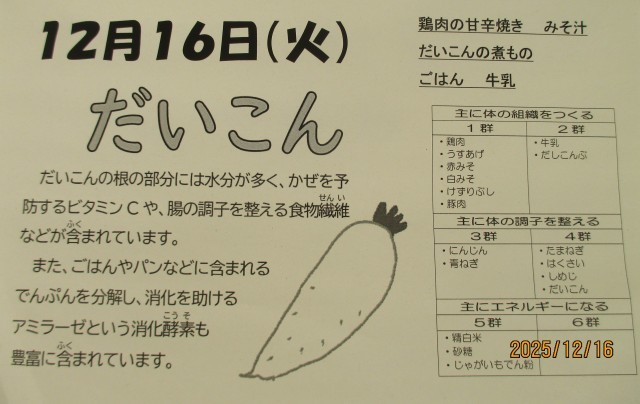 12月16日(火)
だいこん
だいこんの根の部分には水分が多く、かぜを予
防するビタミンCや、腸の調子を整える食物繊維
せんい
などが含まれています。
ふく
また、ごはんやパンなどに含まれる
でんぷんを分解し、消化を助ける
アミラーゼという消化酵素も
こうそ
豊富に含まれています。
ふく
鶏肉の甘辛焼き みそ汁
だいこんの煮もの
ごはん 牛乳
主に体の組織をつくる
1群 2群
・鶏肉 ・牛乳
・うすあげ ・だしこんぶ
・赤みそ
・白みそ
・けずりぶし
・豚肉
主に体の調子を整える
3群 4群
・にんじん ・たまねぎ
・青ねぎ ・はくさい
・しめじ
・だいこん
主にエネルギーになる
5群 6群
・精白米
・砂糖
・じゃがいもでん粉
2025/12/16